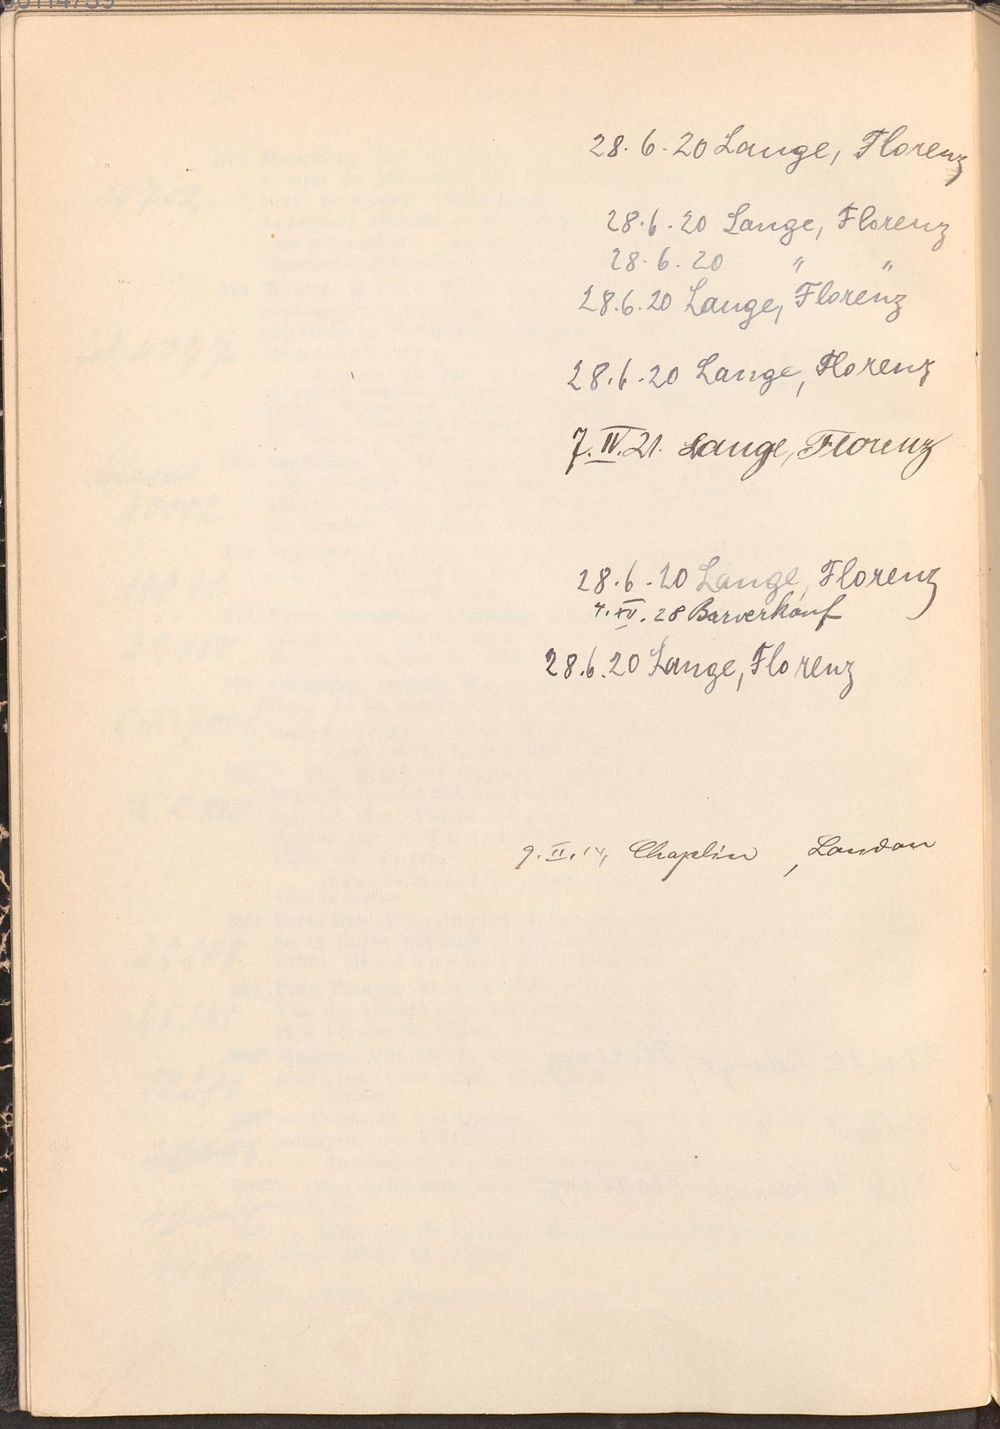 28. 6. 20 Lange, Florenz
28. 6. 20 Lange, Florenz
28. 6. 20 " "
28. 6. 20 Lange, Florenz
28. 6. 20 Lange, Florenz
7. IV. 21. Lange, Florenz
28. 6. 20 Lange, Florenz
28 Barverkauf
28. 6. 20 Lange, Florenz
9. II. 14, Chaplin , London